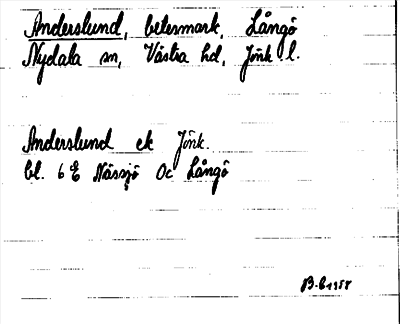 Anderslund, betesmark, Långö
Nydala sn, Västra hd, Jönk. l.
Anderslund ek Jönk.
bl. 6E Nässjö Oc Långö